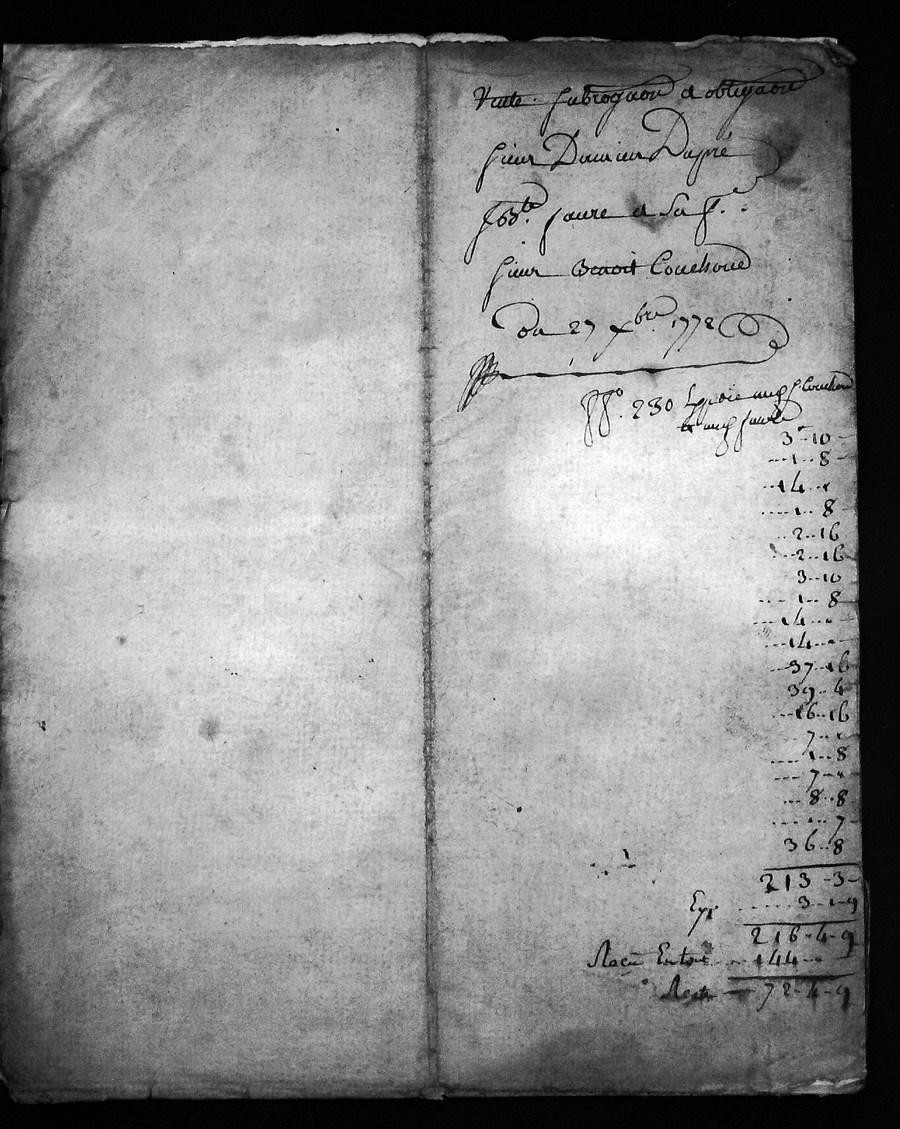 Vente. subrogaon et obligaon
sieur Damien Dupré
faure et sa f.e
sieur Benoit Couchoud
Du 27 xbre 1778
230 Couchoud
3 - 10 -
1 - 8 -
14 - "
1 - 8
2 - 16
2 - 16
3 - 10
1 - 8
14 - "
14 - "
37 - 16
39 - 4
16 - 16
7 - "
1 - 8
7 - "
8 - 8
" - 7
36 - 8
213 - 3 -
Exp. 3 - 1 - 9
216 - 4 - 9
Receu 144 - "
Reste 72 - 4 - 9